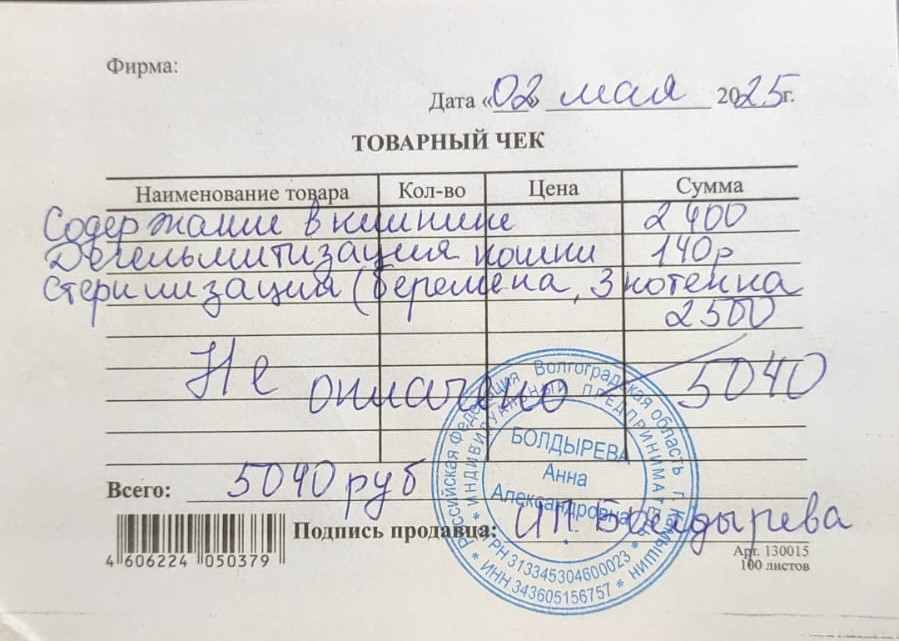 Фирма:
Дата «02» мая 2025г.
ТОВАРНЫЙ ЧЕК
Наименование товара Кол-во Цена Сумма
Содержание в клинике 2400
Дегельмитизация кошки 140р
Стерилизация (беремена, 3 котенка
2500
Не оплачено 5040
Всего: 5040 руб
Подпись продавца: ИП Болдырева
Российская Федерация Волгоградская область г. Камышин
ИНДИВИДУАЛЬНЫЙ ПРЕДПРИНИМАТЕЛЬ
БОЛДЫРЕВА
Анна
Александровна
ОГРН 313345304600023
ИНН 343605156757
4 606224 050379
Арт. 130015
100 листов